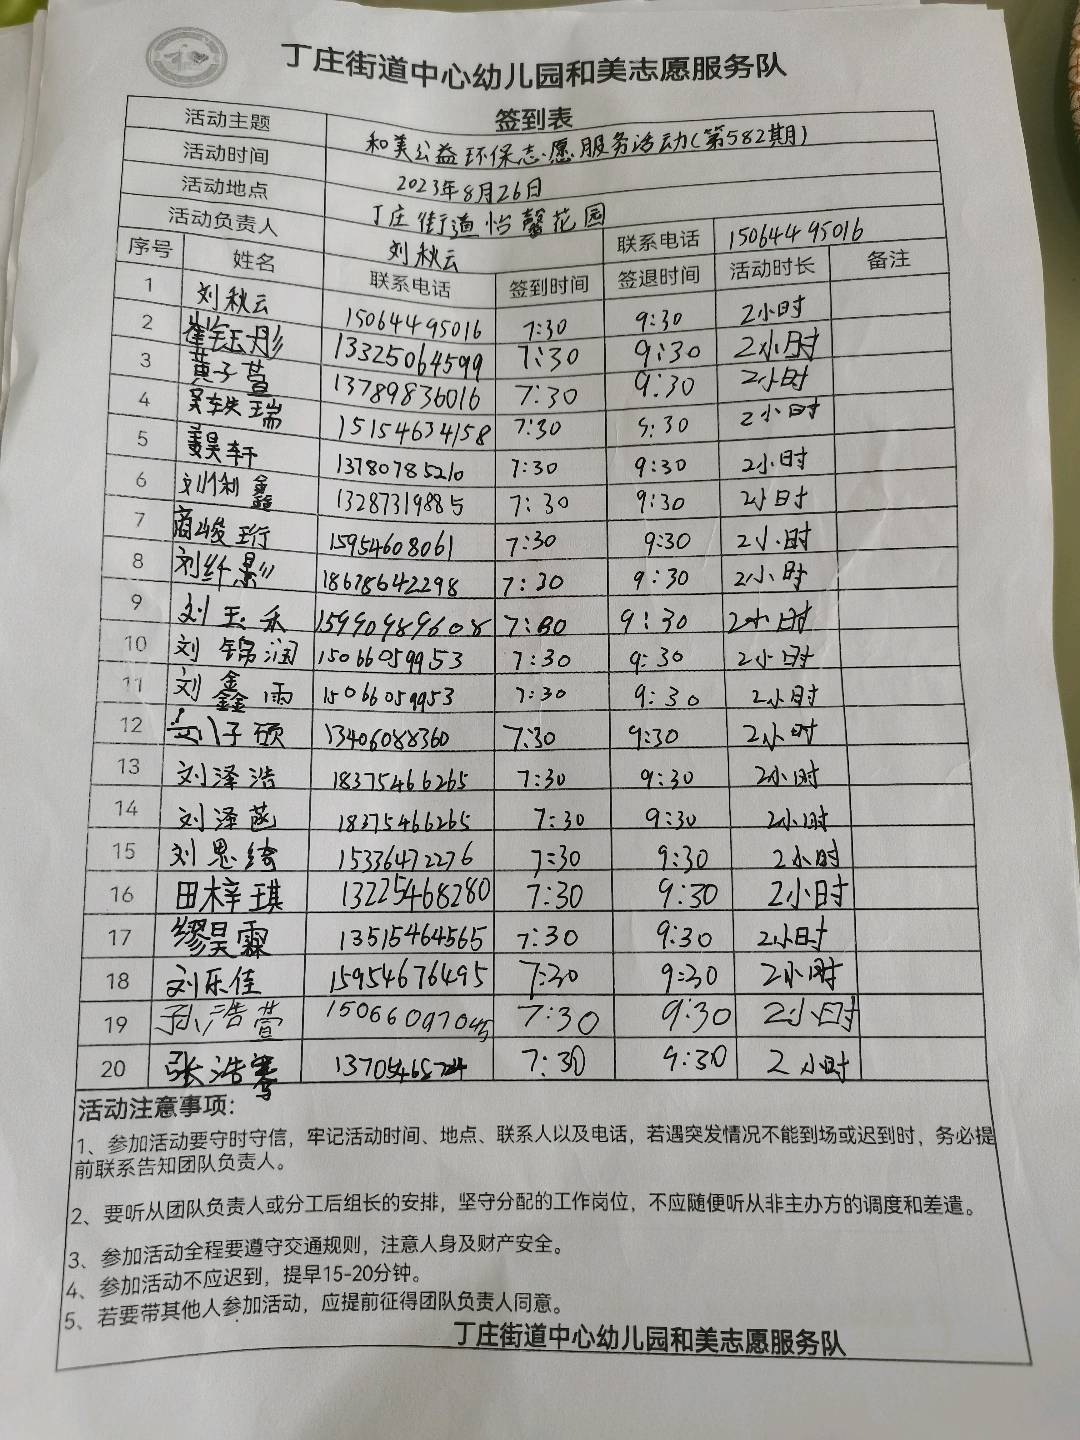 丁庄街道中心幼儿园和美志愿服务队
签到表
活动主题 和美公益环保志愿服务活动(第582期)
活动时间 2023年8月26日
活动地点 丁庄街道怡馨花园
活动负责人 刘秋云 联系电话 15064495016
序号 姓名 联系电话 签到时间 签退时间 活动时长 备注
1 刘秋云 15064495016 7:30 9:30 2小时
2 崔钰彤 13325064599 7:30 9:30 2小时
3 黄子萱 13789836016 7:30 9:30 2小时
4 吴轶瑞 15154634158 7:30 9:30 2小时
5 昊轩 13780785210 7:30 9:30 2小时
6 刘俐鑫 13287319885 7:30 9:30 2小时
7 商峻珩 15954608061 7:30 9:30 2小时
8 刘纤影 18678642298 7:30 9:30 2小时
9 刘玉禾 7:30 9:30 2小时
10 刘锦润 15066059953 7:30 9:30 2小时
11 刘鑫雨 15066059953 7:30 9:30 2小时
12 子硕 13406088360 7:30 9:30 2小时
13 刘泽浩 18375466265 7:30 9:30 2小时
14 刘泽菡 18375466265 7:30 9:30 2小时
15 刘思绮 15336472276 7:30 9:30 2小时
16 田梓琪 13225468280 7:30 9:30 2小时
17 缪昊霖 13515464565 7:30 9:30 2小时
18 刘乐佳 15954676495 7:30 9:30 2小时
19 孙浩萱 15066097045 7:30 9:30 2小时
20 张浩骞 7:30 9:30 2小时
活动注意事项:
1、参加活动要守时守信，牢记活动时间、地点、联系人以及电话，若遇突发情况不能到场或迟到时，务必提
前联系告知团队负责人。
2、要听从团队负责人或分工后组长的安排，坚守分配的工作岗位，不应随便听从非主办方的调度和差遣。
3、参加活动全程要遵守交通规则，注意人身及财产安全。
4、参加活动不应迟到，提早15-20分钟。
5、若要带其他人参加活动，应提前征得团队负责人同意。
丁庄街道中心幼儿园和美志愿服务队